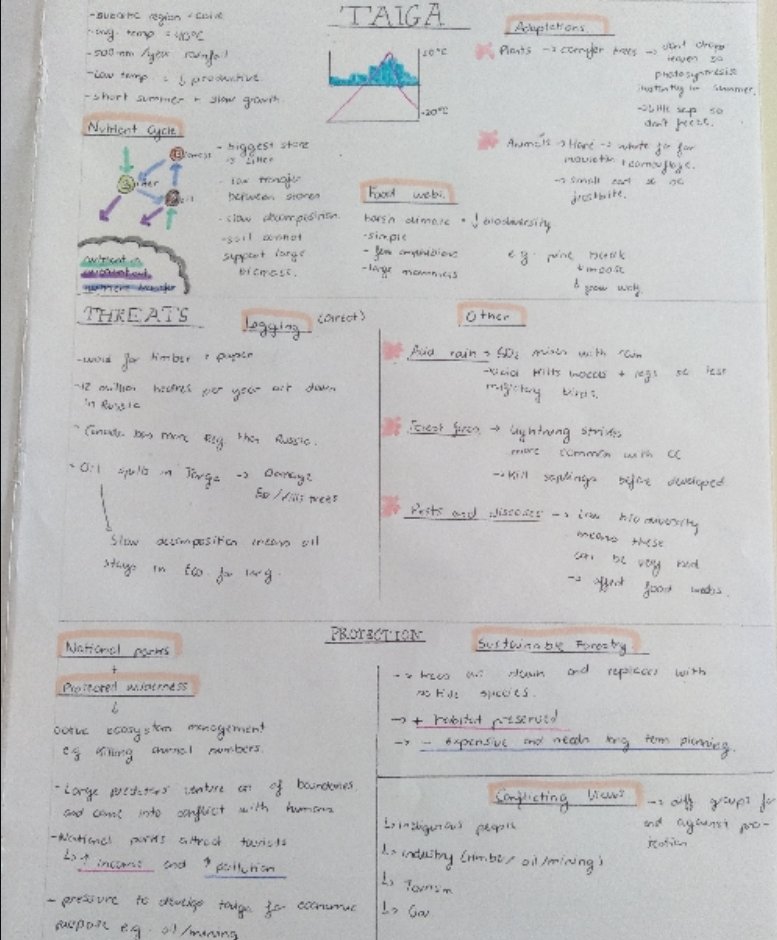 TAIGA
- subarctic region = cold
- avg. temp =
- 500mm /year rainfall
- low temp = ↓ productive
- short summer + slow growth.
10°C
-20°C
Adaptations
Plants → conifer trees → don't drop
leaves so
photosynthesise
instantly in summer.
→ little sap so
don't freeze.
Animals → Hare → white fur for
camouflage.
→ small ears so no
frostbite.
Nutrient Cycle
Biomass
Litter
Soil
nutrient in
nutrient out
nutrient transfer
- biggest store
is litter
- low transfer
between stores
- slow decomposition.
- soil cannot
support large
biomass.
Food webs.
harsh climate = ↓ biodiversity
- simple
- few amphibians
- large mammals
e.g. pine
↓ moose
↓ grey wolf
THREATS
Logging (Direct)
- wood for timber + paper
- 12 million hectres per year cut down
in Russia
- Canada has more reg. than Russia.
- Oil spills in Taiga → Damage
/kills trees
slow decomposition means oil
stays in Eco. for long.
Other
Acid rain → SO₂ mixes with rain
→ acid kills insects + eggs so less
migratory birds.
Forest fires → lightning strikes
more common with CC
→ kill saplings before developed
Pests and diseases → low biodiversity
means these
can be very bad
→ affect food webs.
PROTECTION
National parks
+
Protected wilderness
↓
active ecosystem management
eg killing animal numbers.
- Large predators venture out of boundaries
and come into conflict with humans
- National parks attract tourists
↳ ↑ income and ↑ pollution
- pressure to develop taiga for economic
purpose e.g. oil/mining
Sustainable Forestry
→ trees cut down and replaced with
native species.
→ + habitat preserved
→ - expensive and needs long term planning.
Conflicting Views → diff groups for
and against pro-
tection
↳ indigenous people
↳ industry (timber/ oil/mining)
↳ Tourism
↳ Gov.